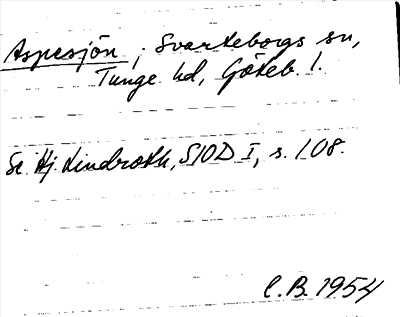 Aspesjön, Svarteborgs sn,
Tunge hd, Göteb. l.
Se Hj. Lindroth, SIOD I, s. 108.
C.B. 1954